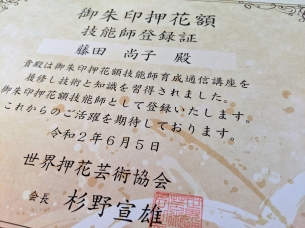 御朱印押花額
技能師登録証
藤田 尚子 殿
貴殿は御朱印押花額技能師育成通信講座を
履修し技術と知識を習得されました。
御朱印押花額技能師として登録いたします。
これからのご活躍を期待しております。
令和２年６月５日
世界押花芸術協会
会長 杉野宣雄